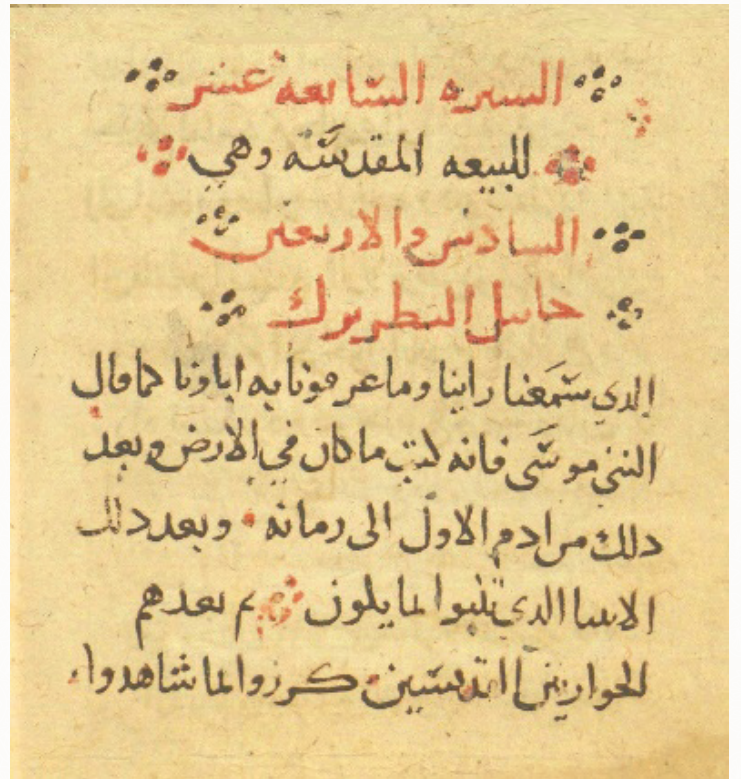 السيره السابعه عشر
للبيعه المقدسه وهي
السادس والاربعين
خايل البطريرك
الدي سمعنا راينا وما عرفونا به اباونا كما قال
النبي موسى فانه كتب ما كان في الارض وبعد
دلك من ادم الاول الى زمانه وبعد دلك
الانبيا الدي تنبوا لما يكون ثم بعدهم
الحواريين القديسين كرزوا لما شاهدوا